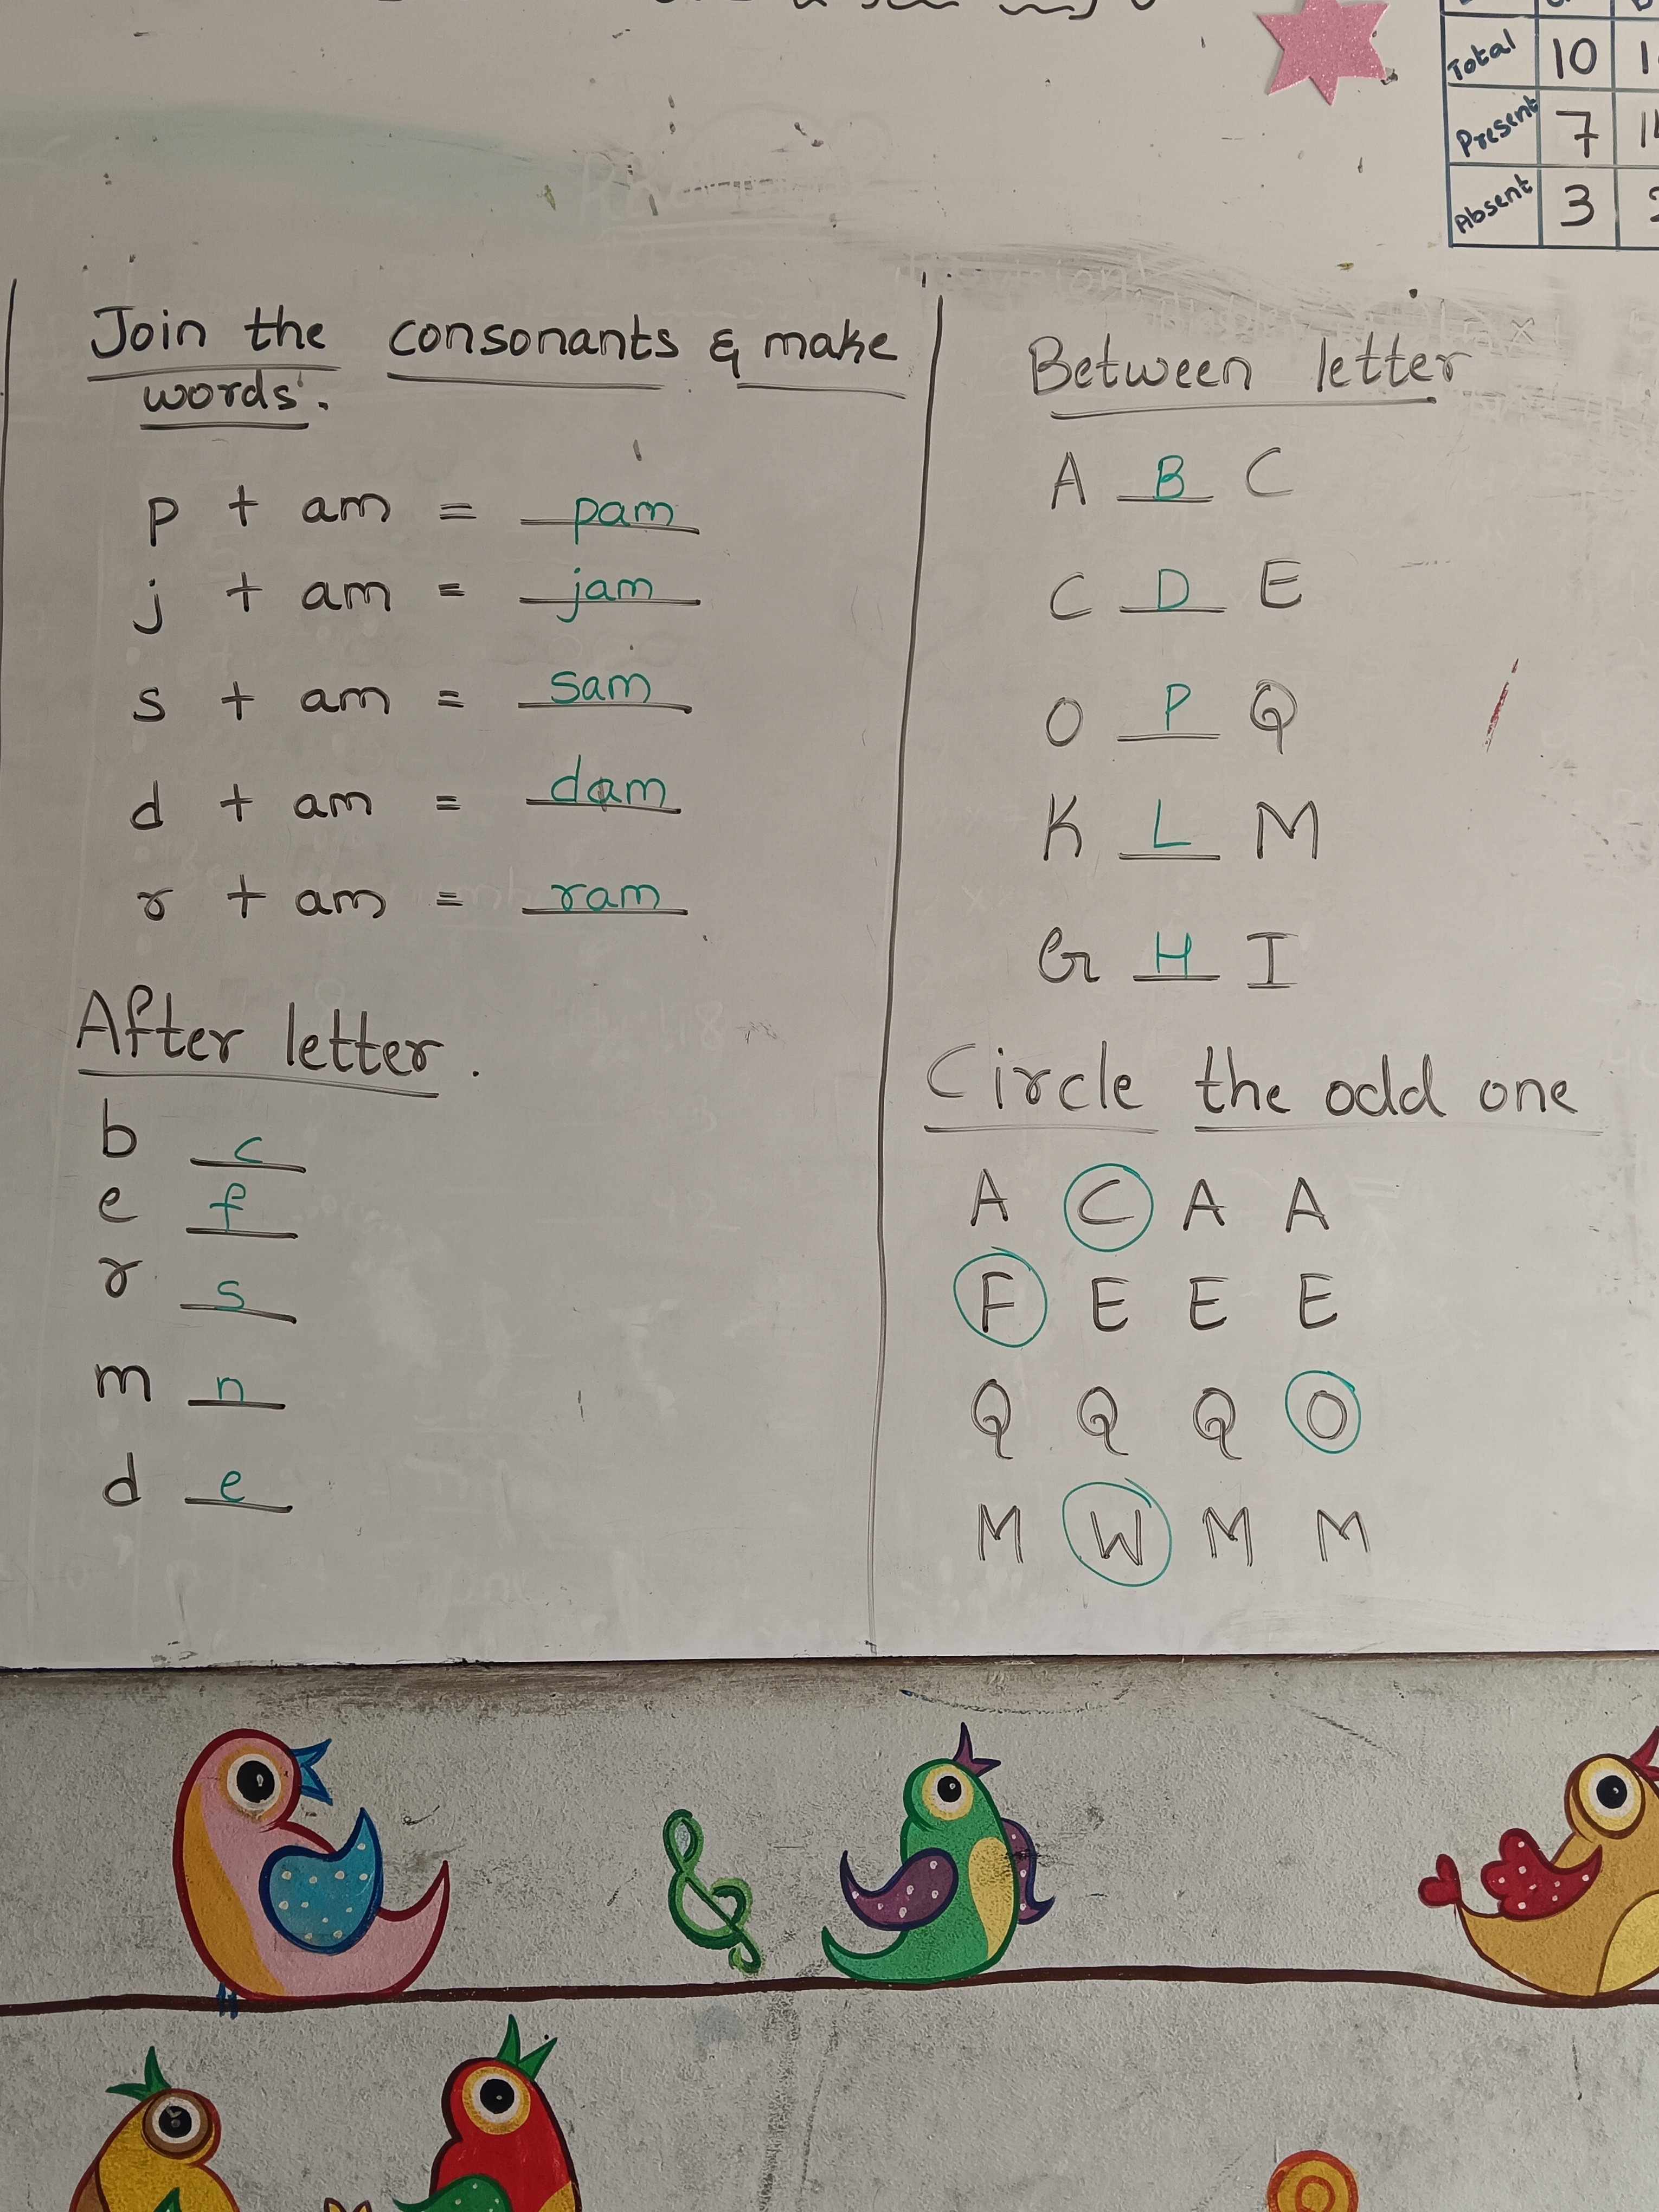 Total 10
Present 7
Absent 3
Join the consonants & make
words.
p + am = pam
j + am = jam
s + am = sam
d + am = dam
r + am = ram
After letter.
b c
e f
r s
m n
d e
Between letter
A B C
C D E
O P Q
K L M
G H I
Circle the odd one
A C A A
F E E E
Q Q Q O
M W M M